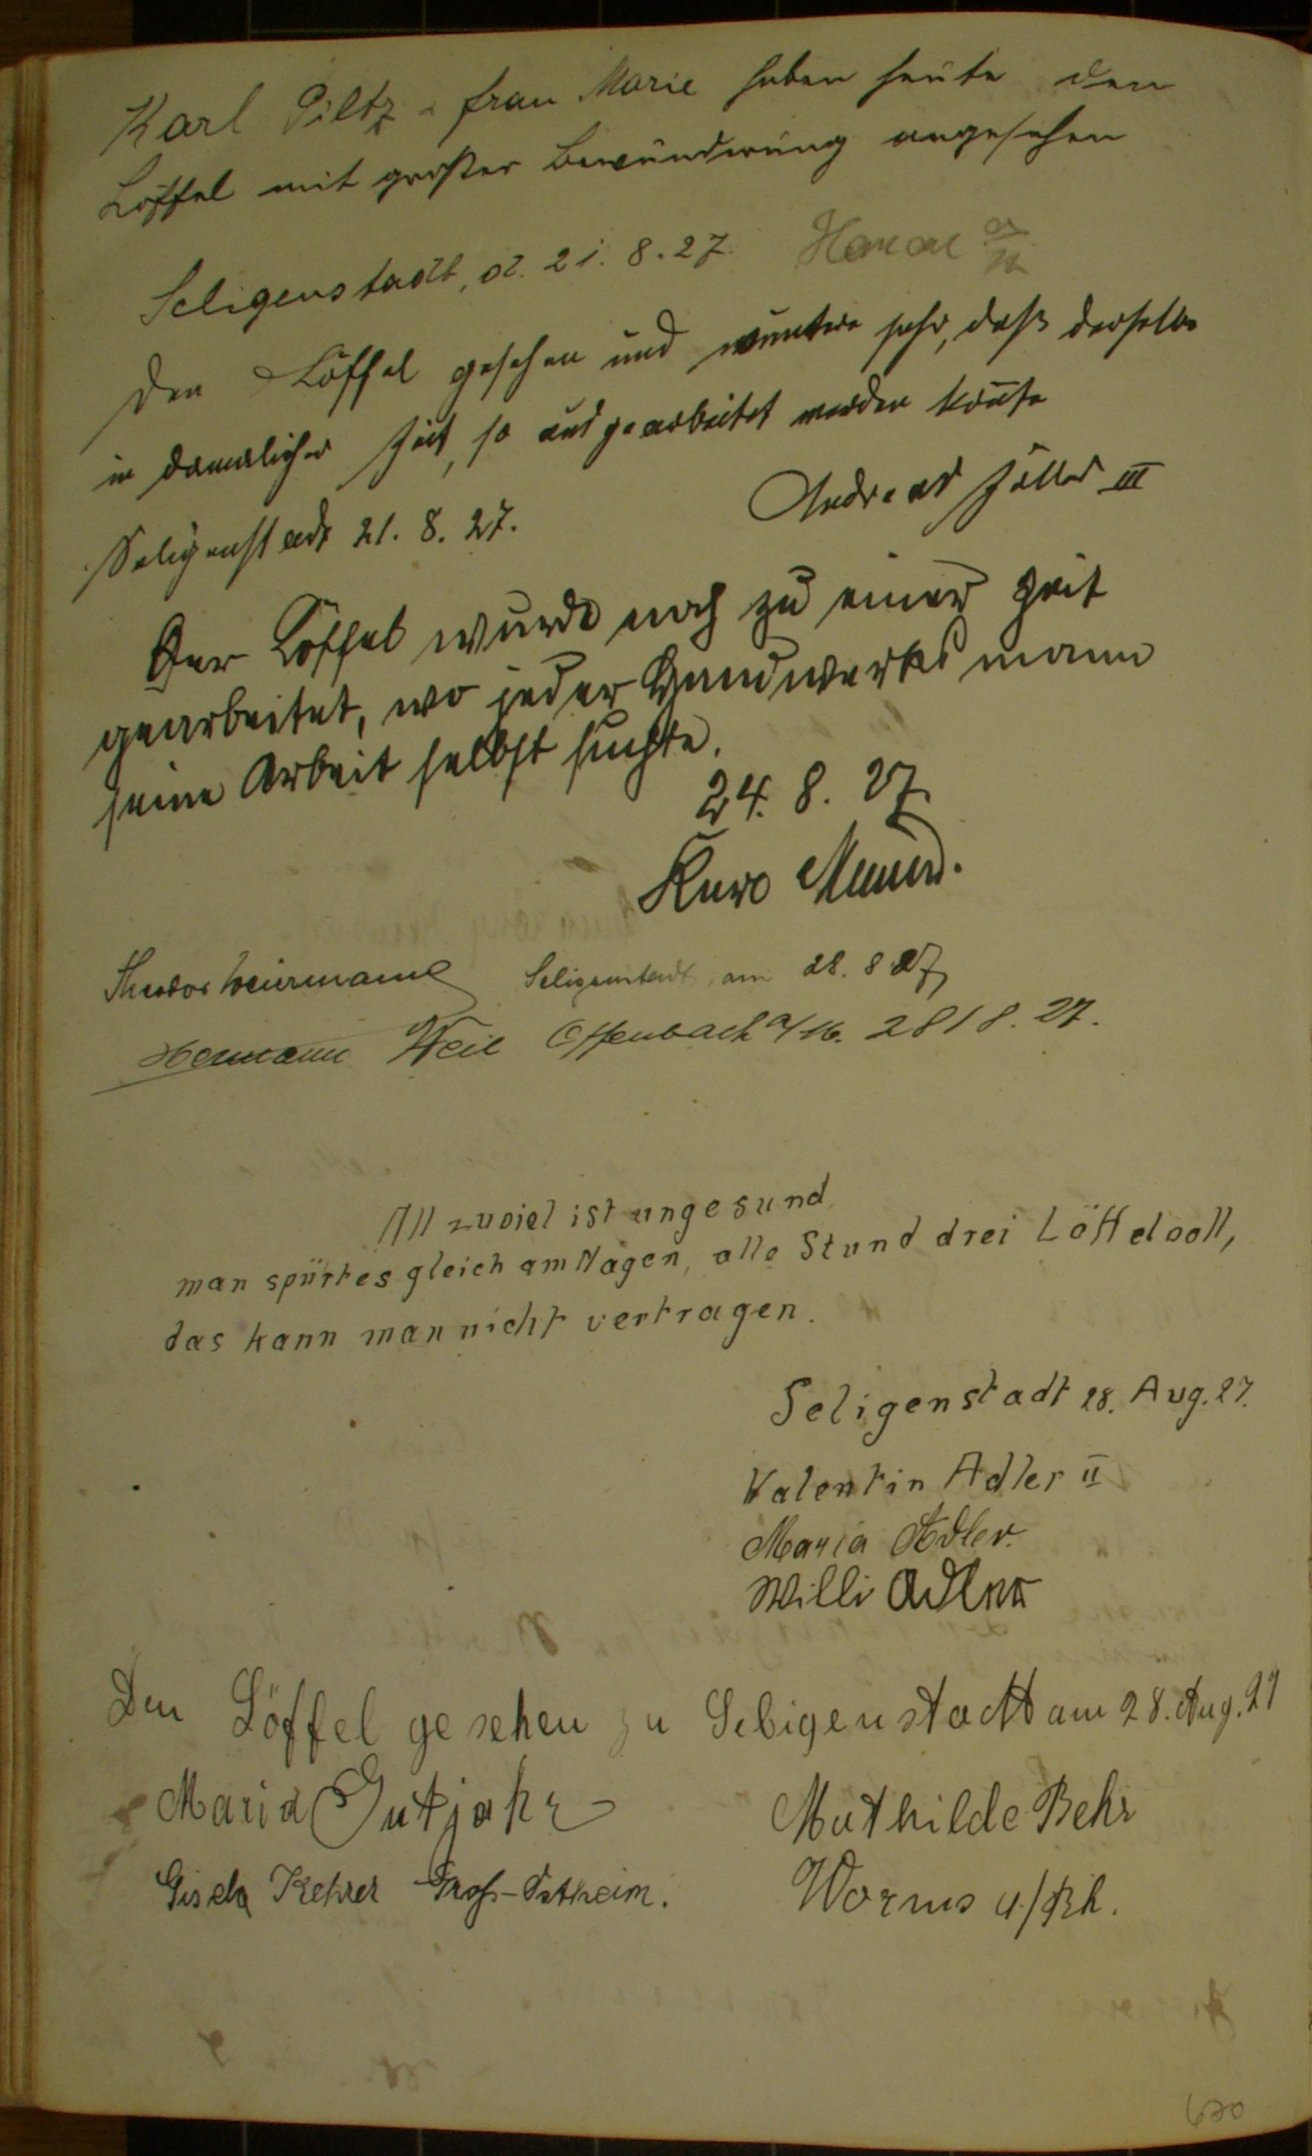 Karl Piltz u frau Marie haben heute den
Löffel mit großer Bewunderung angesehen
Seligenstadt, d. 21. 8. 27. Hanau a/M
Den Löffel gesehen und wundere sehr, daß derselbe
in damaliger Zeit, so ausgearbeitet werden konnte
Andreas Zöller III
Seligenstadt 21. 8. 27.
Der Löffel wurde noch zu einer Zeit
gearbeitet, wo jeder Handwerksmann
seine Arbeit selbst suchte.
24. 8. 27
Theodor Weiermann Seligenstadt, am 28. 8 27
Hermann Weil Offenbach a/M. 28/8. 27.
Allzuviel ist ungesund,
man spürt es gleich am Magen, alle Stund drei Löffelvoll,
das kann man nicht vertragen.
Seligenstadt 28. Aug. 27.
Valentin Adler II
Maria Adler.
Willi Adler
Den Löffel gesehen zu Seligenstadt am 28. Aug. 27
Maria Gutjahr Mathilde Behr
Gisela Kehrer Groß-Ostheim. Worms a/Rh.
630